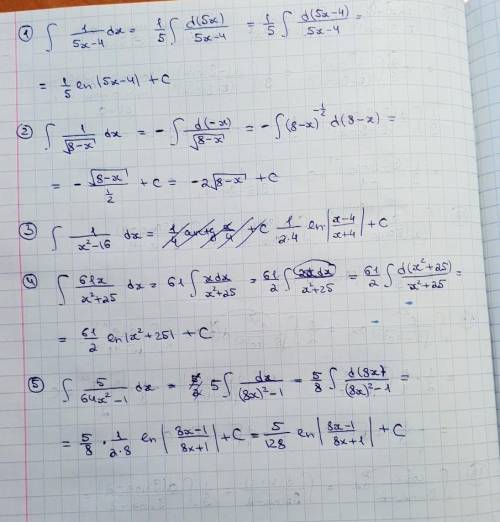 ① ∫ 1/(5x-4) dx = 1/5 ∫ d(5x)/(5x-4) = 1/5 ∫ d(5x-4)/(5x-4) =
= 1/5 ln|5x-4| + C
② ∫ 1/√(8-x) dx = - ∫ d(-x)/√(8-x) = - ∫ (8-x)^(-1/2) d(8-x) =
= - √(8-x)/(1/2) + C = -2√(8-x) + C
③ ∫ 1/(x²-16) dx = 1/(2·4) ln|(x-4)/(x+4)| + C
④ ∫ 61x/(x²+25) dx = 61 ∫ xdx/(x²+25) = 61/2 ∫ 2xdx/(x²+25) = 61/2 ∫ d(x²+25)/(x²+25) =
= 61/2 ln|x²+25| + C
⑤ ∫ 5/(64x²-1) dx = 5 ∫ dx/((8x)²-1) = 5/8 ∫ d(8x)/((8x)²-1) =
= 5/8 · 1/(2·8) ln|(8x-1)/(8x+1)| + C = 5/128 ln|(8x-1)/(8x+1)| + C